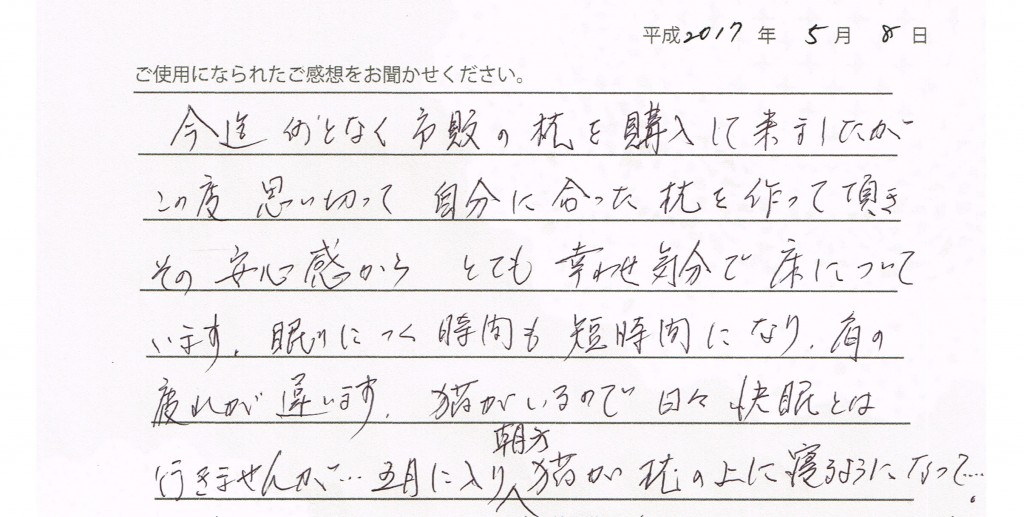 平成2017年 5月 8日
ご使用になられたご感想をお聞かせください。
今迄 何となく 市販の 枕を 購入して来ましたが
この度 思い切って 自分に合った 枕を作って頂き
その 安心感から とても 幸わせ気分で 床について
います。眠りにつく時間も 短時間になり、肩の
疲れが 違います。猫がいるので 日々 快眠とは
行きませんが… 五月に入り朝方猫が 枕の上に寝るようになって….